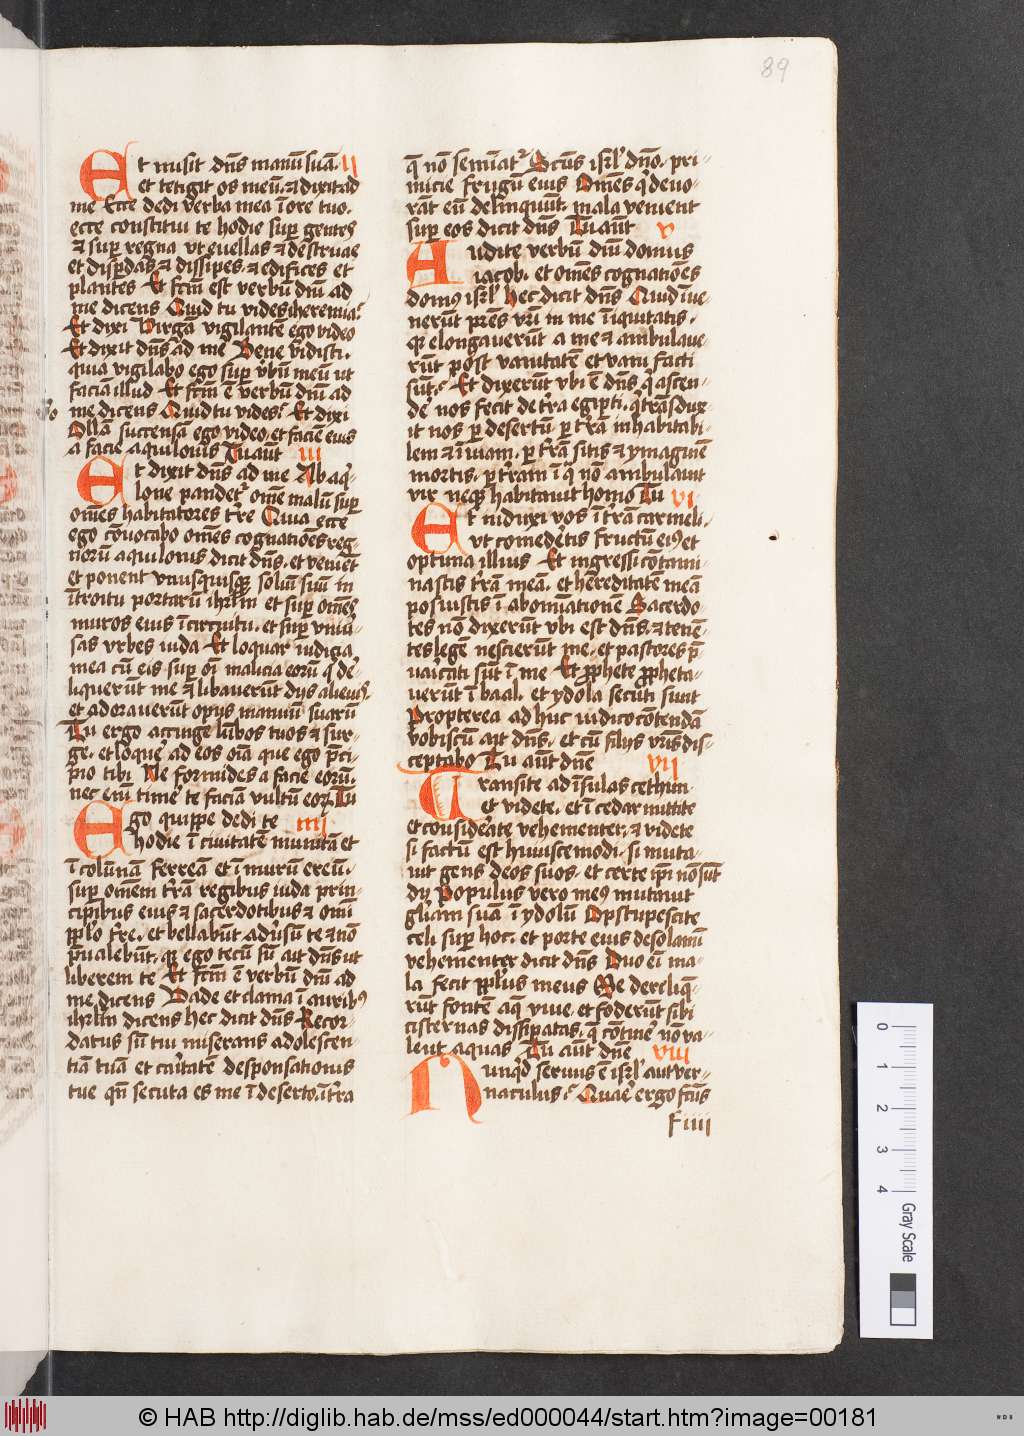 89
Et misit dn̄s manū suā. ii
et tetigit os meū. ⁊ dixit ad
me Ecce dedi verba mea ī ore tuo.
ecce constitui te hodie suꝑ gentes
⁊ suꝑ regna vt euellas ⁊ destruae
et disꝑdas ⁊ dissipes. ⁊ edifices et
plantes Et fcm̄ est verbū dnī ad
me dicens Quid tu vides iheremia?
Et dixi Virgā vigilantē ego video
Et dixit dn̄s ad me Bene vidisti.
quia vigilabo ego suꝑ vbū meū ut
faciā illud Et fcm̄ ē verbū dnī ad
me dicens Quid tu vides? Et dixi
Ollā succensā ego video. et faciē eius
a facie aquilonis Tu aut iii
Et dixit dn̄s ad me Ab aq̇
lone pandet᷑ om̄e malū suꝑ
om̄es habitatores tr̄e Quia ecce
ego cōuocabo om̄es cognatiōes reg
noru aquilonis dicit dn̄s. et veniēt
et ponent vnusquisqꝫ soliū suū in
ītroitu portarū ihrlm̄ et suꝑ om̄es
muros eius ī circuitu. et suꝑ vniu̓
sas vrbes iuda Et loquar iudicia
mea cū eis suꝑ oī malicia eorū q̄ de̓
liquerūt me ⁊ libauerūt dijs alienis.
et adorauerūt opus manuū suarū
Tu ergo accinge lūbos tuos ⁊ sur⸗
ge. et loque̓ ad eos oīa que ego p̄ci
pio tibi Ne formides a facie eorū.
nec enī time̓ te faciā vultū eoꝝ Tu
Ego quippe dedi te iiij
hodie ī ciuitatē munitā et
ī colūnā ferreā et ī murū ereū.
suꝑ om̄em tr̄ā regibus iuda prin⸗
cipibus eius ⁊ sacerdotibus ⁊ om̄i
pp̄lo tr̄e. et bellabūt adu̓sū te ⁊ nō
p̄ualebūt. qꝫ ego tecū sū ait dn̄s ut
liberem te Et fcm̄ ē verbū dnī ad
me dicens Vade et clama ī auribꝰ
ihrlm̄ dicens hec dicit dn̄s Recor⸗
datus sū tui miserans adolescen
tiā tuā et caritatē desponsationis
tue qn̄ secuta es me ī deserto. ī tr̄a
q̄ nō semīat᷑ Scūs isrl̓ dn̄o. pri⸗
micie frugū eius Om̄es q̇ deuo⸗
rāt eū delinquūt. mala venient
suꝑ eos dicit dn̄s Tu aūt v
Audite verbū dnī domus
iacob. et om̄es cognatiōes
domꝰ isrl̓ hec dicit dn̄s Quid īue⸗
nerūt pr̄es vr̄i in me īiquitatis.
qꝫ elongauerūt a me ⁊ ambulaue
rūt post vanitatē et vani facti
sūt? Et dixerūt vbi ē dn̄s q̇ ascen⸗
de̓ nos fecit de tr̄a egipti. q̇ trāsdux⸗
it nos ꝑ desertū ꝑ tr̄ā inhabitabi⸗
lem ⁊ īuiam. ꝑ tr̄ā sitis ⁊ ymaginē
mortis. ꝑ tr̄am ī q̄ nō ambulauit
vir neqꝫ habitauit homo Tu vi
Et induxi vos ī tr̄ā carmeli.
vt comedetis fructū eiꝰ et
optima illius Et ingressi cōtami
nastis tr̄ā meā. et hereditatē meā
posuistis ī abomīationē Sacerdo⸗
tes nō dixerūt vbi est dn̄s. ⁊ tenē⸗
tes legē nescierūt me. et pastores p̄
uaricati sūt ī me Et ꝓphete ꝓpheta⸗
uerūt ī baal. et ydola secuti sunt
Propterea ad huc iudico cōtendā
vobiscū ait dn̄s. et cū filijs vrīs dis⸗
ceptabo Tu aūt dn̄e vii
Transite ad īsulas cethim
et videte. et ī cedar mittite
et considerate vehementer. ⁊ videte
si factū est huiuscemodi. si muta⸗
uit gens deos suos. et certe ip̄i nō sūt
dij Populus vero meꝰ mutauit
gl̄iam suā ī ydolū Opstupescite
celi suꝑ hoc. et porte eius desolamī
vehementer dicit dn̄s Duo eī ma⸗
la fecit pp̄lus meus Me dereliq̄⸗
rūt fontē aq̄ viue. et foderūt sibi
cisternas dissipatas. q̄ cōtine̓ nō va⸗
lent aquas Tu aūt dn̄e viii
Nunq̇d seruus ē isrl̓ aut ver⸗
naculus? Quare ergo fcūs
f iiii
0 1 2 3 4
Gray Scale
© HAB http://diglib.hab.de/mss/ed000044/start.htm?image=00181